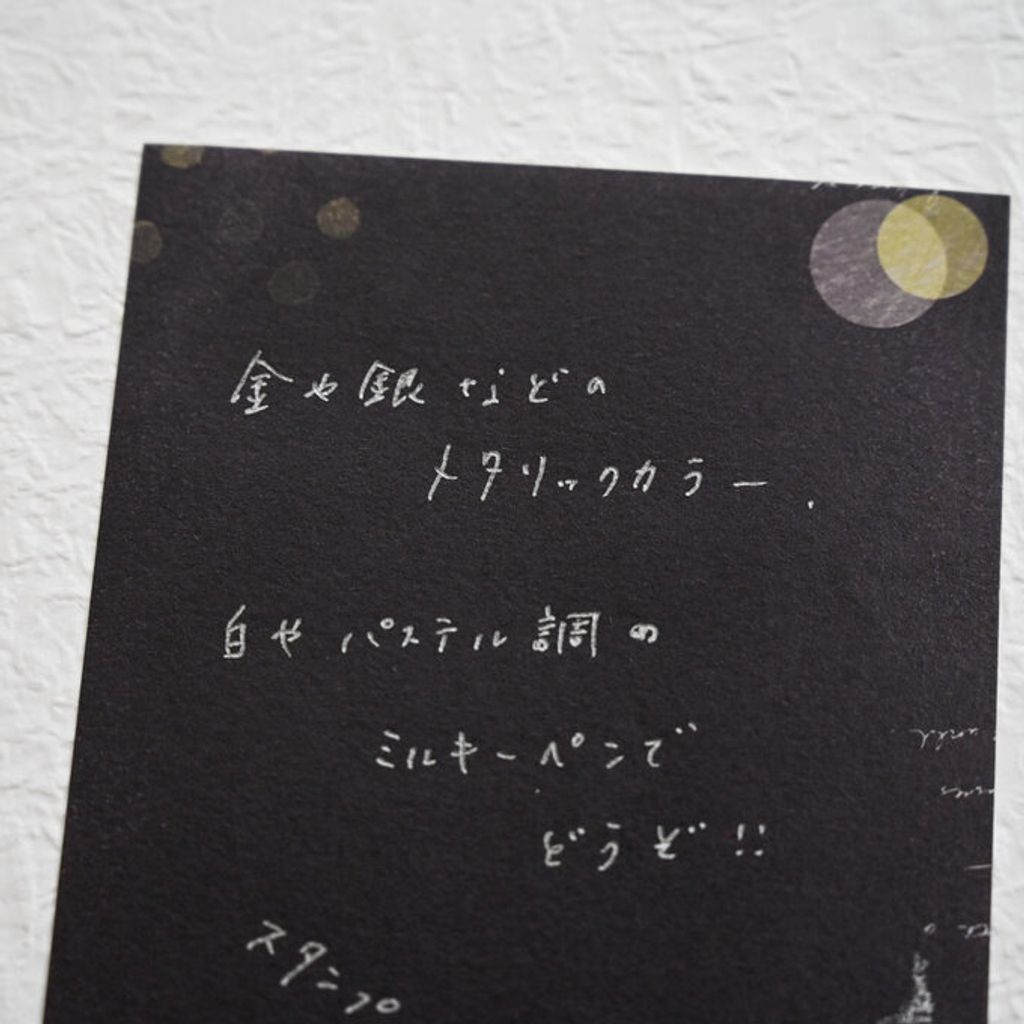 金や銀などの
メタリックカラー.
白やパステル調の
ミルキーペンで
どうぞ!!
スタンプ